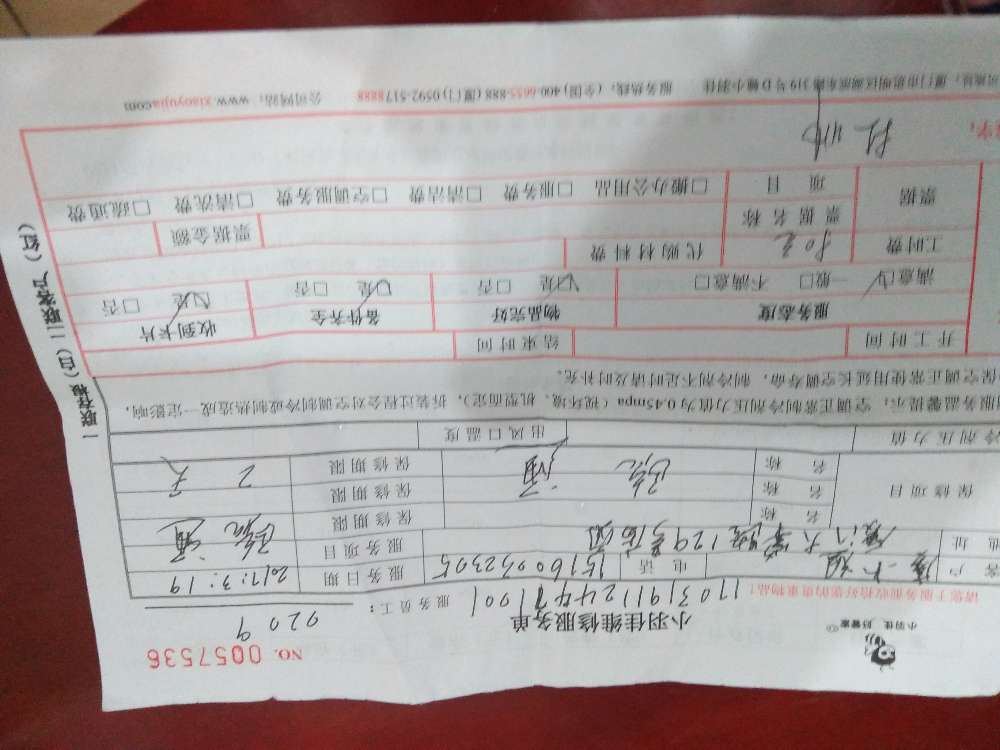 小羽佳 好管家
小羽佳维修服务单
NO. 0057536
请您于服务前收拾好您的贵重物品！
服务员工： 9209
客户 电话 15160052305 服务日期 2017.3.19
地址 服务项目 疏通
保修项目 名称 保修期限
名称 保修期限
名称 疏通 保修期限 2天
冷剂压力值 出风口温度
服务温馨提示：空调正常制冷剂压力值为0.45mpa（视环境、机型而定），拆装过程会对空调制冷或制热造成一定影响，
保空调正常使用延长空调寿命，制冷剂不足请及时补充。
开工时间 结束时间
服务态度 物品完好 备件齐全 收到卡片
满意☑ 一般□ 不满意□ ☑是 □否 ☑是 □否 ☑是 □否
工时费 80元 代购材料费
票据 票据名称 票据金额
项目 □搬办公用品 □服务费 □清洁费 □空调服务费 □清洗费 □疏通费
字：
厦门市思明区湖滨东路319号D幢小羽佳 服务热线：(全国) 400-6655-888 (厦门) 0592-5178888 公司网站：www.xiaoyujia.com
一联存根（白）二联客户（红）